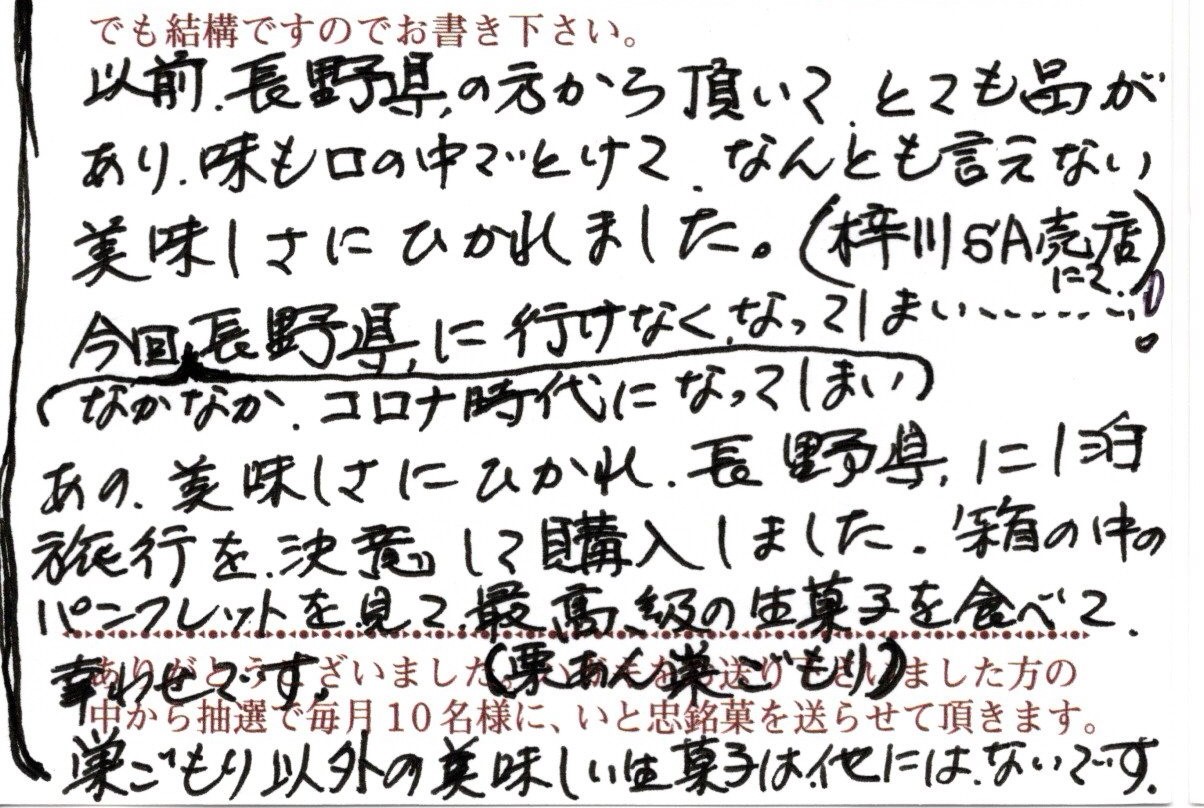 でも結構ですのでお書き下さい。
以前、長野県、の方から頂いて、とても品が
あり、味も口の中でとけて、なんとも言えない
美味しさにひかれました。(梓川SA売店
にて、)
今回、長野県、に行けなく、なってしまい......!
(なかなか、コロナ時代になってしまい)
あの、美味しさにひかれ、長野県、に1泊
旅行を、決意して購入しました。箱の中の
パンフレットを見て、最高、級の生菓子を食べて、
幸わせです。(栗あん巣ごもり)
ありがとうございました 送り ました方の
中から抽選で毎月10名様に、いと忠銘菓を送らせて頂きます。
巣ごもり以外の美味しい生菓子は、他には、ないです。